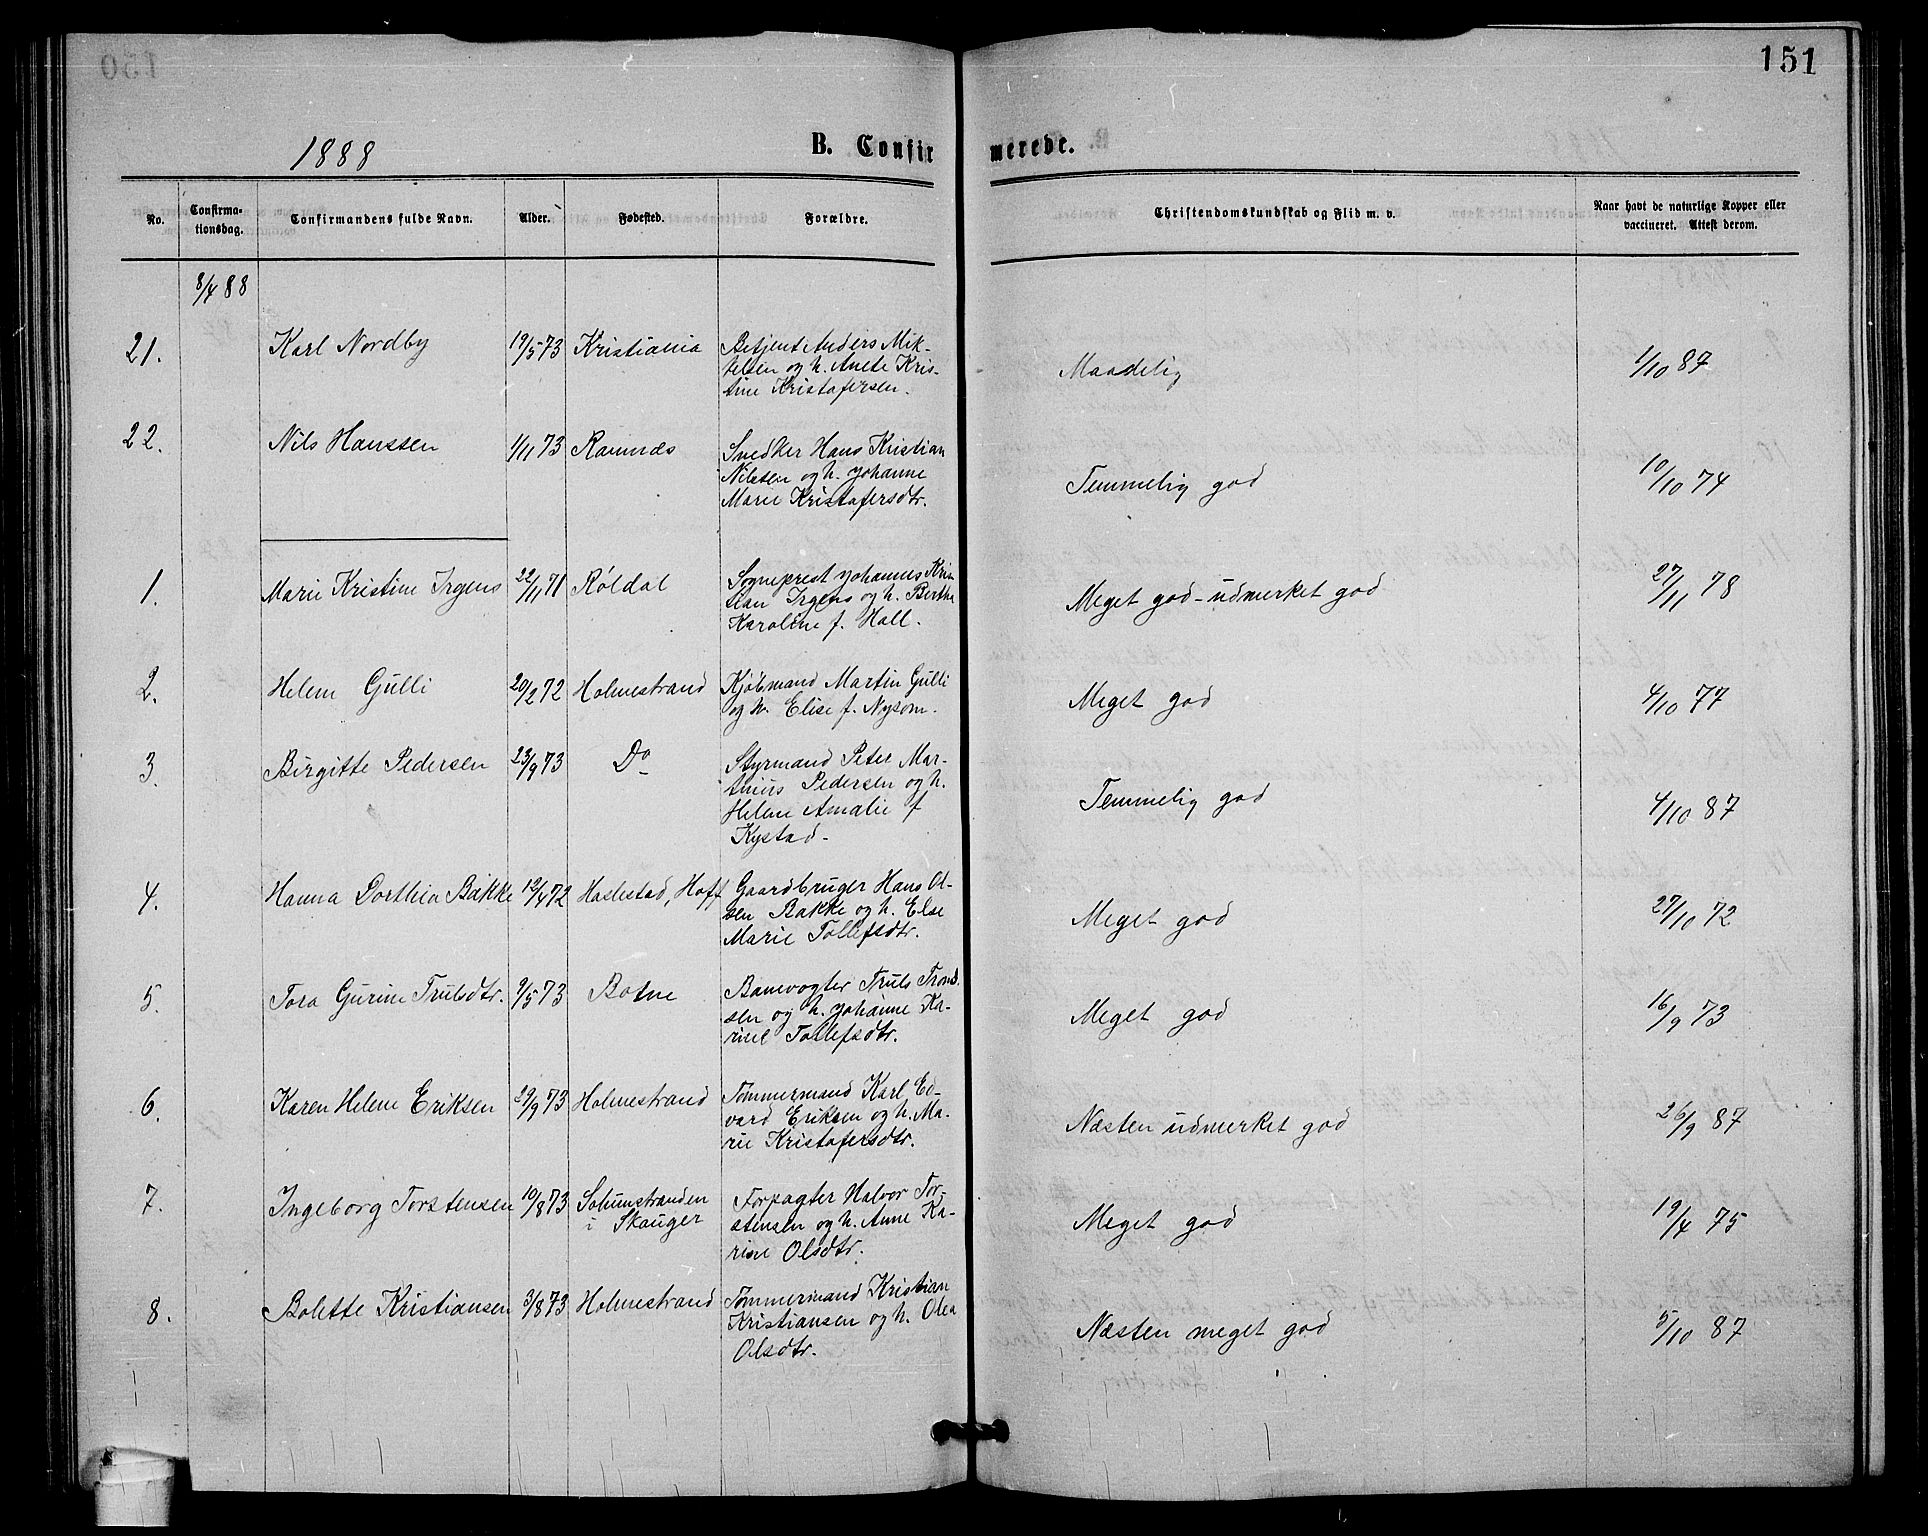 151
1888
B. Confirmerede.
No. Confirma-tionsdag. Confirmandens fulde Navn. Alder. Fødested. Forældre. Christendomskundskab og Flid m. v. Naar havt de naturlige Kopper eller vaccineret. Attest derom.
8/4 88
21. Karl Nordby 19/5 73 Kristiania Betjent Anders Mik-
kelsen og h. Anete Kris-
tine Kristofersen. Maadelig 1/10 87
22. Nils Hanssen 1/11 73 Ramnæs Snedker Hans Kristian
Nilsen og h. Johanne
Marie Kristofersdtr. Temmelig god 10/10 74
1. Marie Kristine Irgens 22/11 71 Røldal Sogneprest Johannes Kris
tian Irgens og h. Berthe
Karoline f. Hall. Meget god - udmerket god 27/11 78
2. Helene Gulli 20/2 72 Holmestrand Kjøbmand Martin Gulli
og h. Elise f. Nysom. Meget god 4/10 77
3. Birgitte Pedersen 23/9 73 Do Styrmand Peter Mar-
tinius Pedersen og h.
Helene Amalie f
Kystad. Temmelig god 4/10 87
4. Hanna Dorthea Bakke 12/4 72 Haslestad, Hoff Gaardbruger Hans Ol-
sen Bakke og h. Else
Marie Tollefsdtr. Meget god 27/10 72
5. Tora Gurine Trulsdtr. 9/5 73 Botne Banevogter Truls Trond
sen og h. Johanne Ka-
rine Tollefsdtr. Meget god 16/9 73
6. Karen Helene Eriksen 29/9 73 Holmestrand Tømmermand Karl Ed-
vard Eriksen og h. Ma-
rie Kristofersdtr. Næsten udmerket god 26/9 87
7. Ingeborg Torstensen 10/8 73 Solumstranden
i Skouger Forpagter Halvor Tor-
stensen og h. Anne Ka-
rine Olsdtr. Meget god 19/4 75
8. Bolette Kristiansen 3/8 73 Holmestrand Tømmermand Kristian
Kristiansen og h. Olea
Olsdtr. Næsten meget god 5/10 87